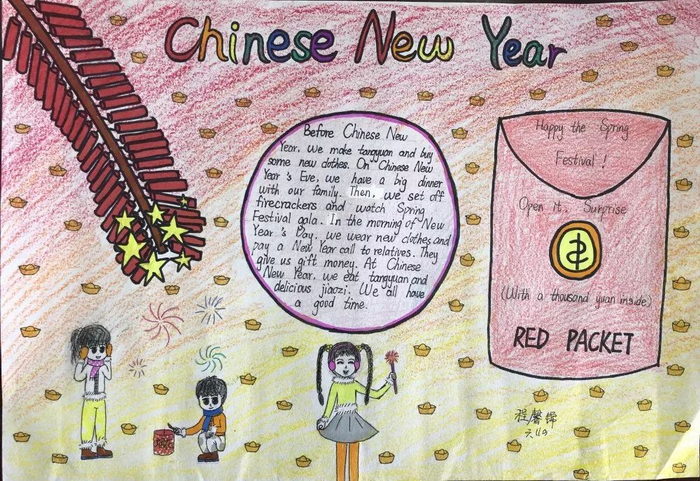 Chinese New Year
Before Chinese New
Year, we make tangyuan and buy
some new clothes. On Chinese New
Year's Eve, we have a big dinner
with our family. Then, we set off
firecrackers and watch Spring
Festival gala. In the morning of New
Year's Day, we wear new clothes and
pay a New Year call to relatives. They
give us gift money. At Chinese
New Year, we eat tangyuan and
delicious jiaozi. We all have
a good time.
Happy the Spring
Festival!
Open it, Surprise
(With a thousand yuan inside)
RED PACKET
程馨锦